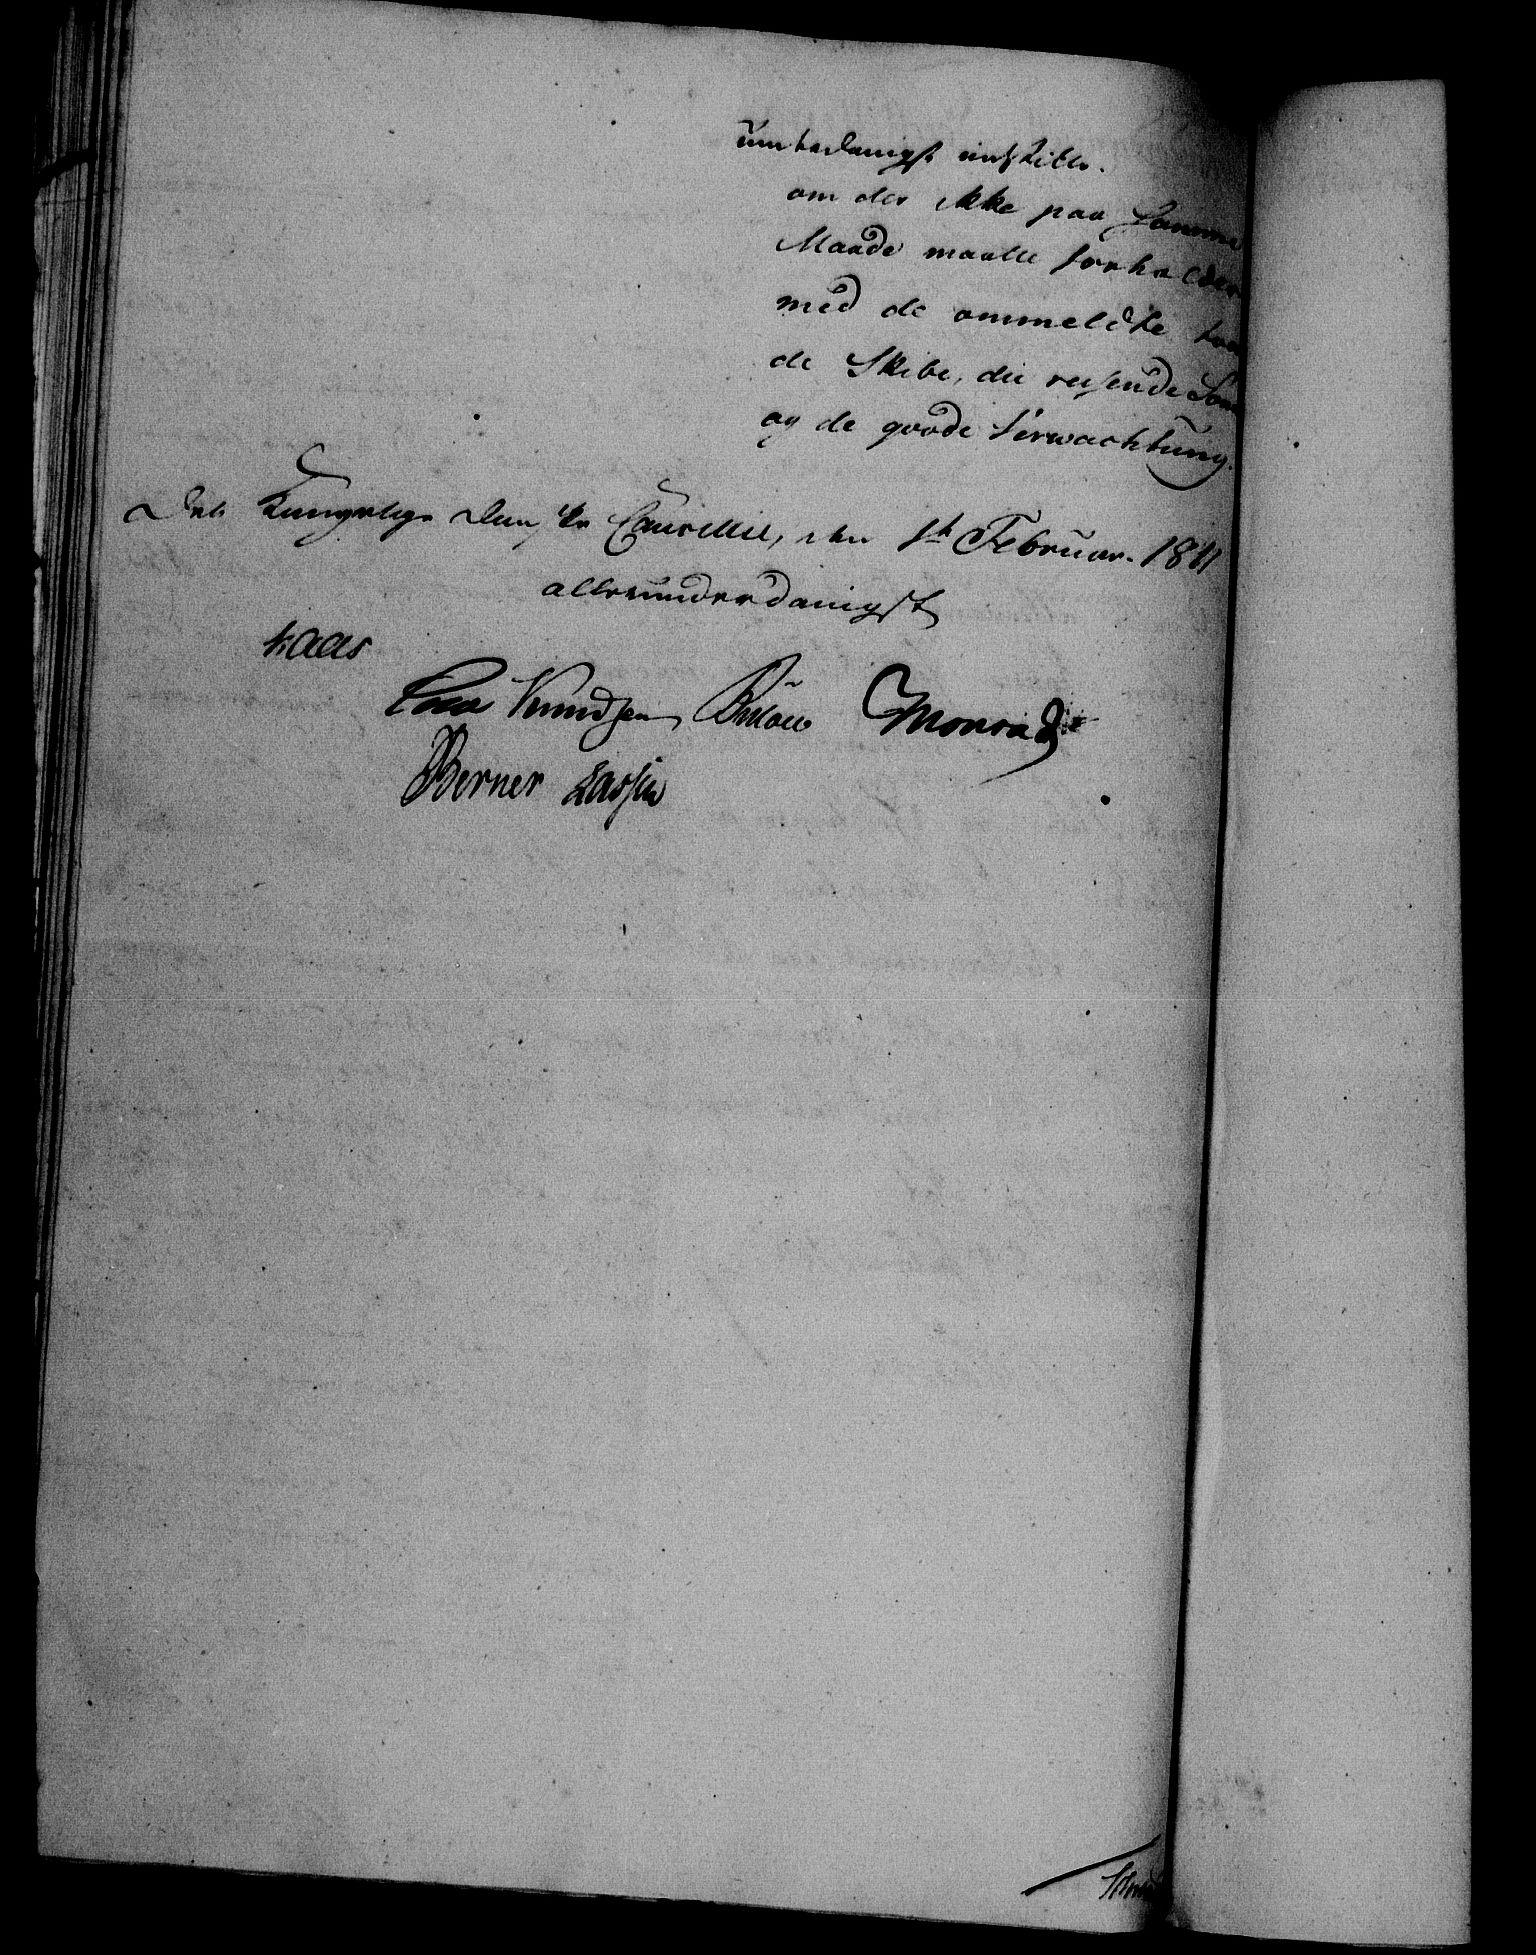 underdanigst indstille.
om der ikke paa samme
Maade maatte forholdes
med de ommeldte tven
de Skibe, die reisende Söne
og de goode Verwachtung.
Det Kongelige Danske Cancellie, den 1ste Februar. 1811
allerunderdanigst
Kaas
Knudsen Bülow Monrad
Berner Lassen